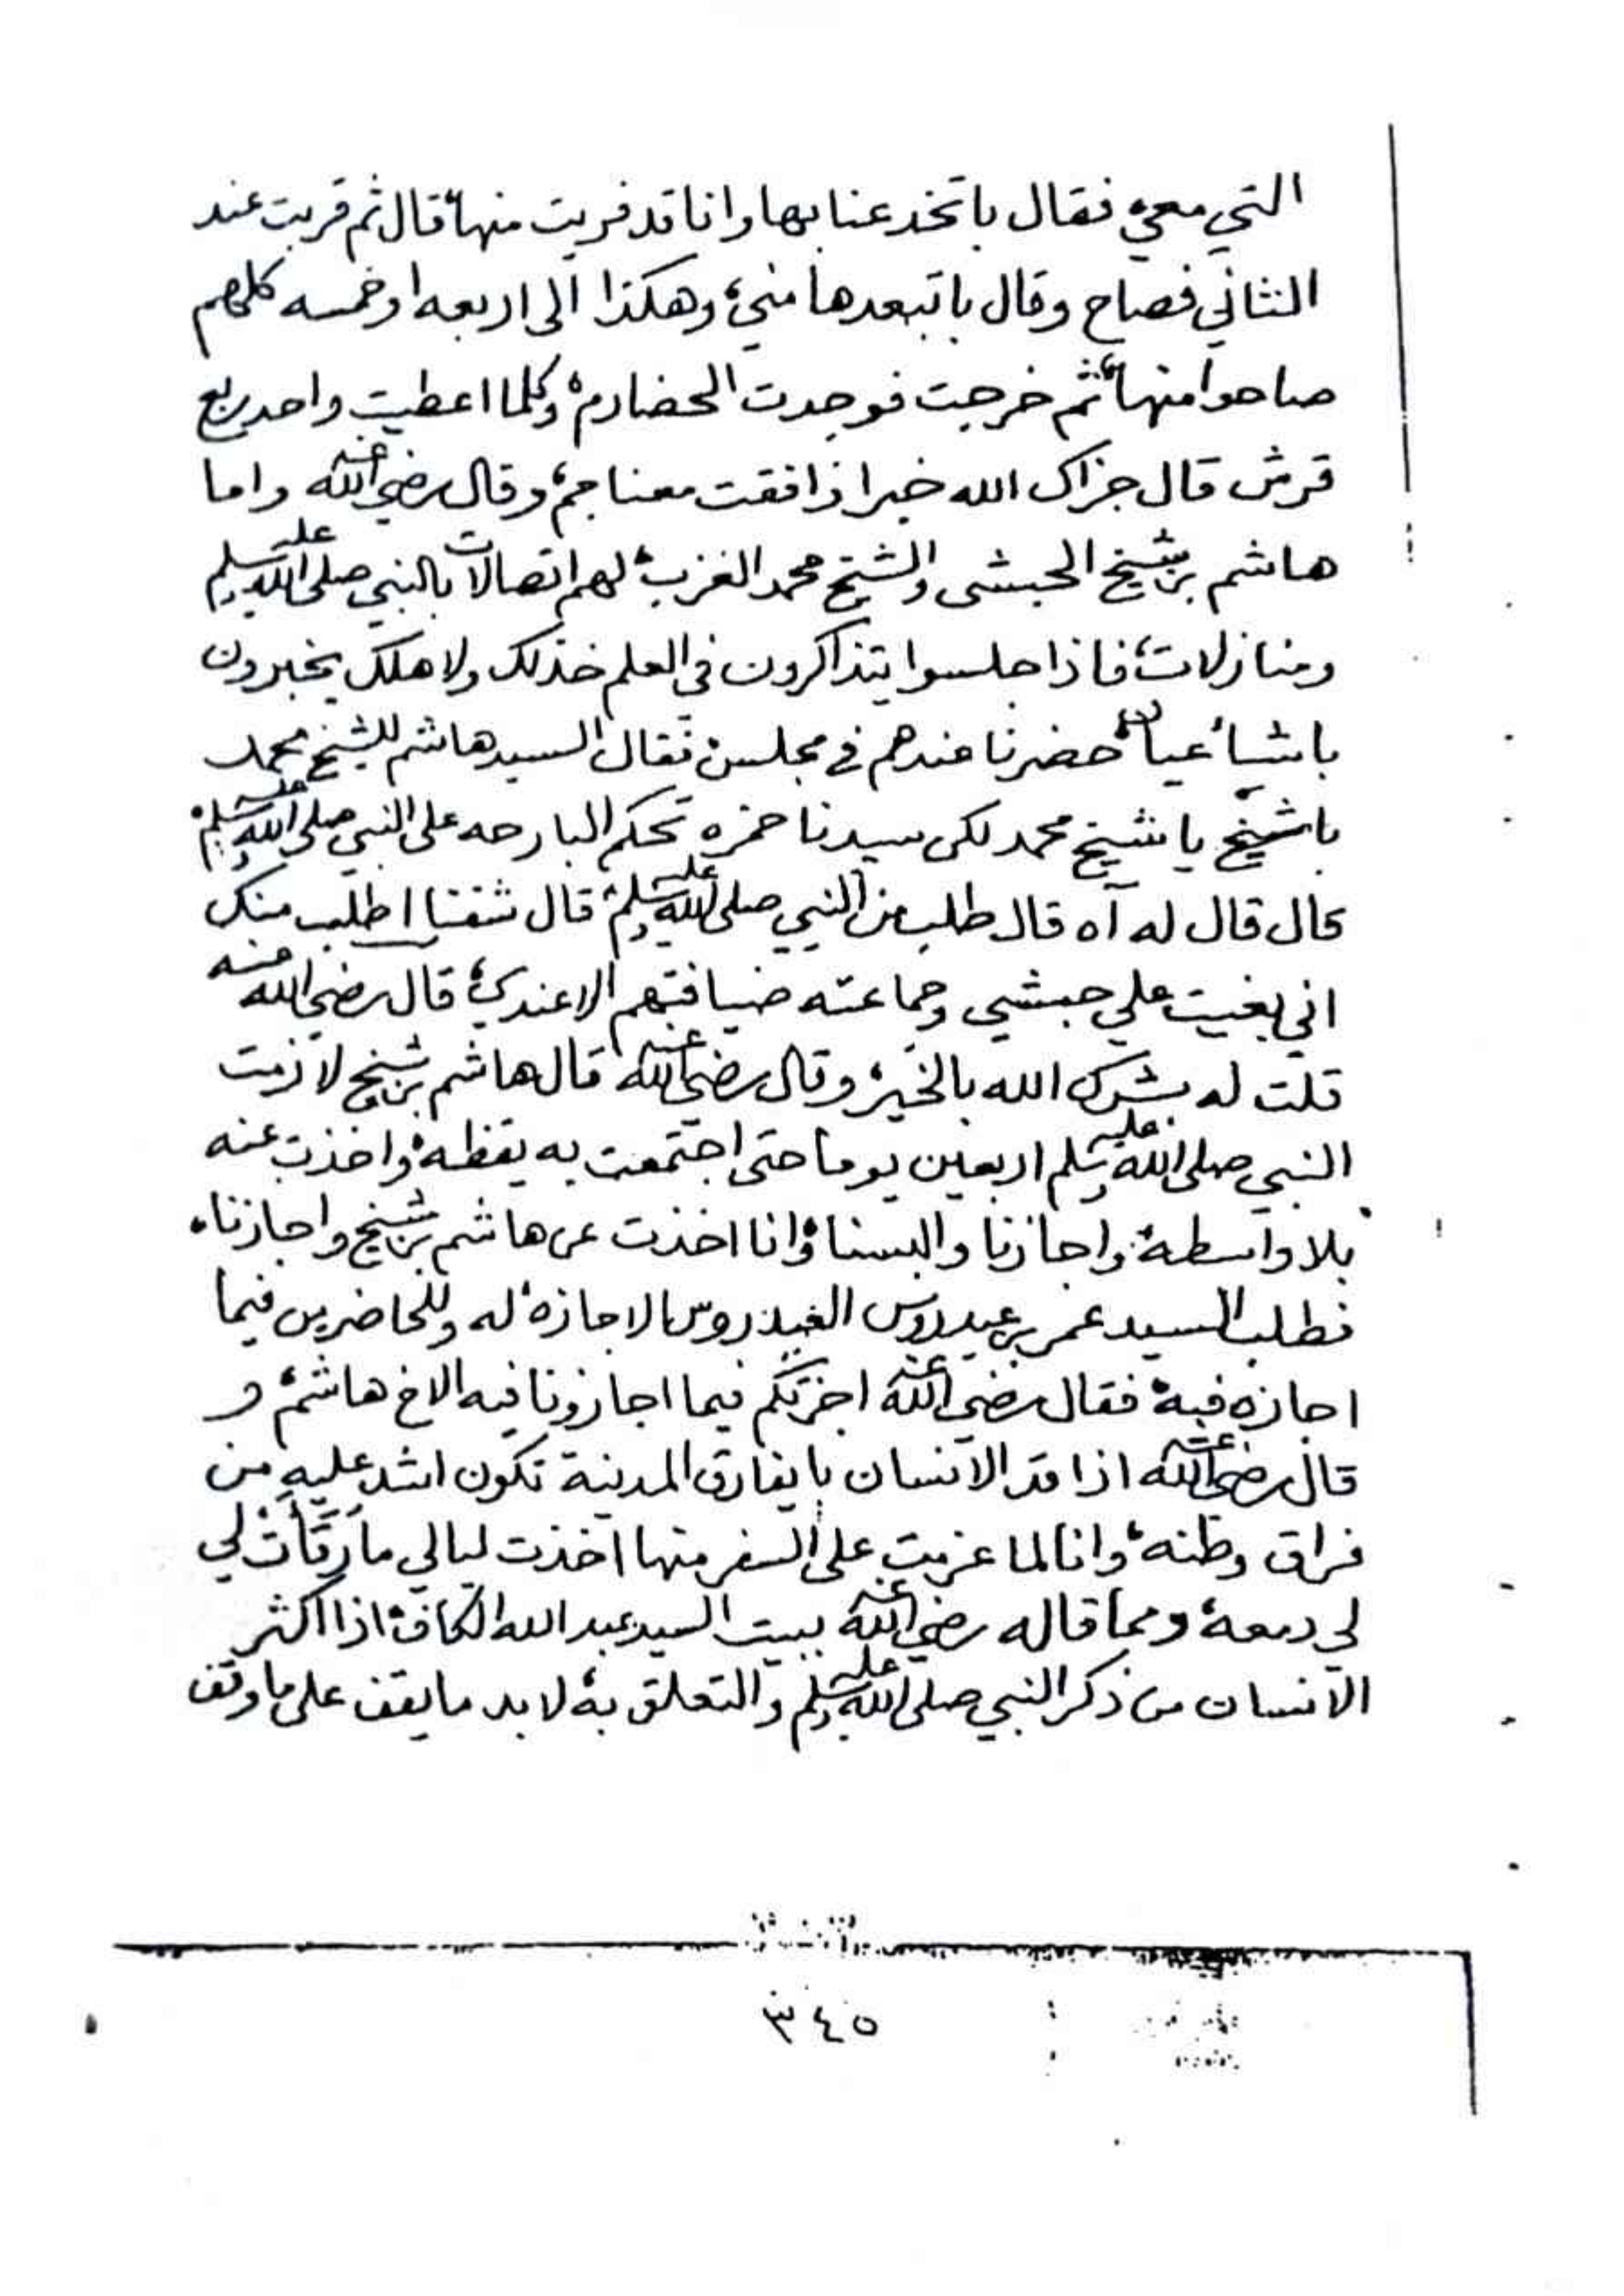 التي معي، فقال باتخدعنا بها وانا قد فريت منها، قال ثم قربت عند
الثاني فصاح وقال باتبعدها مني، وهكذا الى اربعه او خمسه كلهم
صاحوا منها، ثم خرجت فوجدت الحضارم، وكلما اعطيت واحد ربع
قرش قال جزاك الله خيرا ذا فقت معنا جم، وقال رضي الله عنه واما
هاشم بن شيخ الحبشي والشيخ محمد العزب، لهم اتصالات بالنبي صلى الله عليه وسلم
ومنازلات، فاذا جلسوا يتذاكرون في العلم خذلك ولا هلك يخبرون
باشيا عيان، حضرنا عندهم في مجلس، فقال السيد هاشم للشيخ محمد
باشيخ يا شيخ محمد لكن سيدنا حمزه تحكم البارحه على النبي صلى الله عليه وسلم،
قال قال له آه قال طلب من النبي صلى الله عليه وسلم، قال شفنا اطلب منك
اني بغيت علي حبشي وجماعته ضيافتهم الا عندي، قال رضي الله عنه
قلت له بشرك الله بالخير، وقال رضي الله عنه قال هاشم بن شيخ لازمت
النبي صلى الله عليه وسلم اربعين يوما حتى اجتمعت به يقظه، واخذت عنه
بلا واسطه، واجازنا والبسنا، وانا اخذت عن هاشم بن شيخ واجازنا،
فطلب السيد عمر بن عيدروس العيدروس الاجازه، له وللحاضرين فيما
اجازه فيه، فقال رضي الله عنه اجزتكم فيما اجازونا فيه الاخ هاشم، و
قال رضي الله عنه اذا قد الانسان بايفارق المدينة تكون اشد عليه من
فراق وطنه، وانا لما عزمت على السفر منها اخذت ليالي ما رقأت لي
لي دمعة، ومما قاله رضي الله عنه ببيت السيد عبد الله الكاف، اذا اكثر
الانسان من ذكر النبي صلى الله عليه وسلم والتعلق به، لا بد ما يقف على ما وقف
٣٤٥